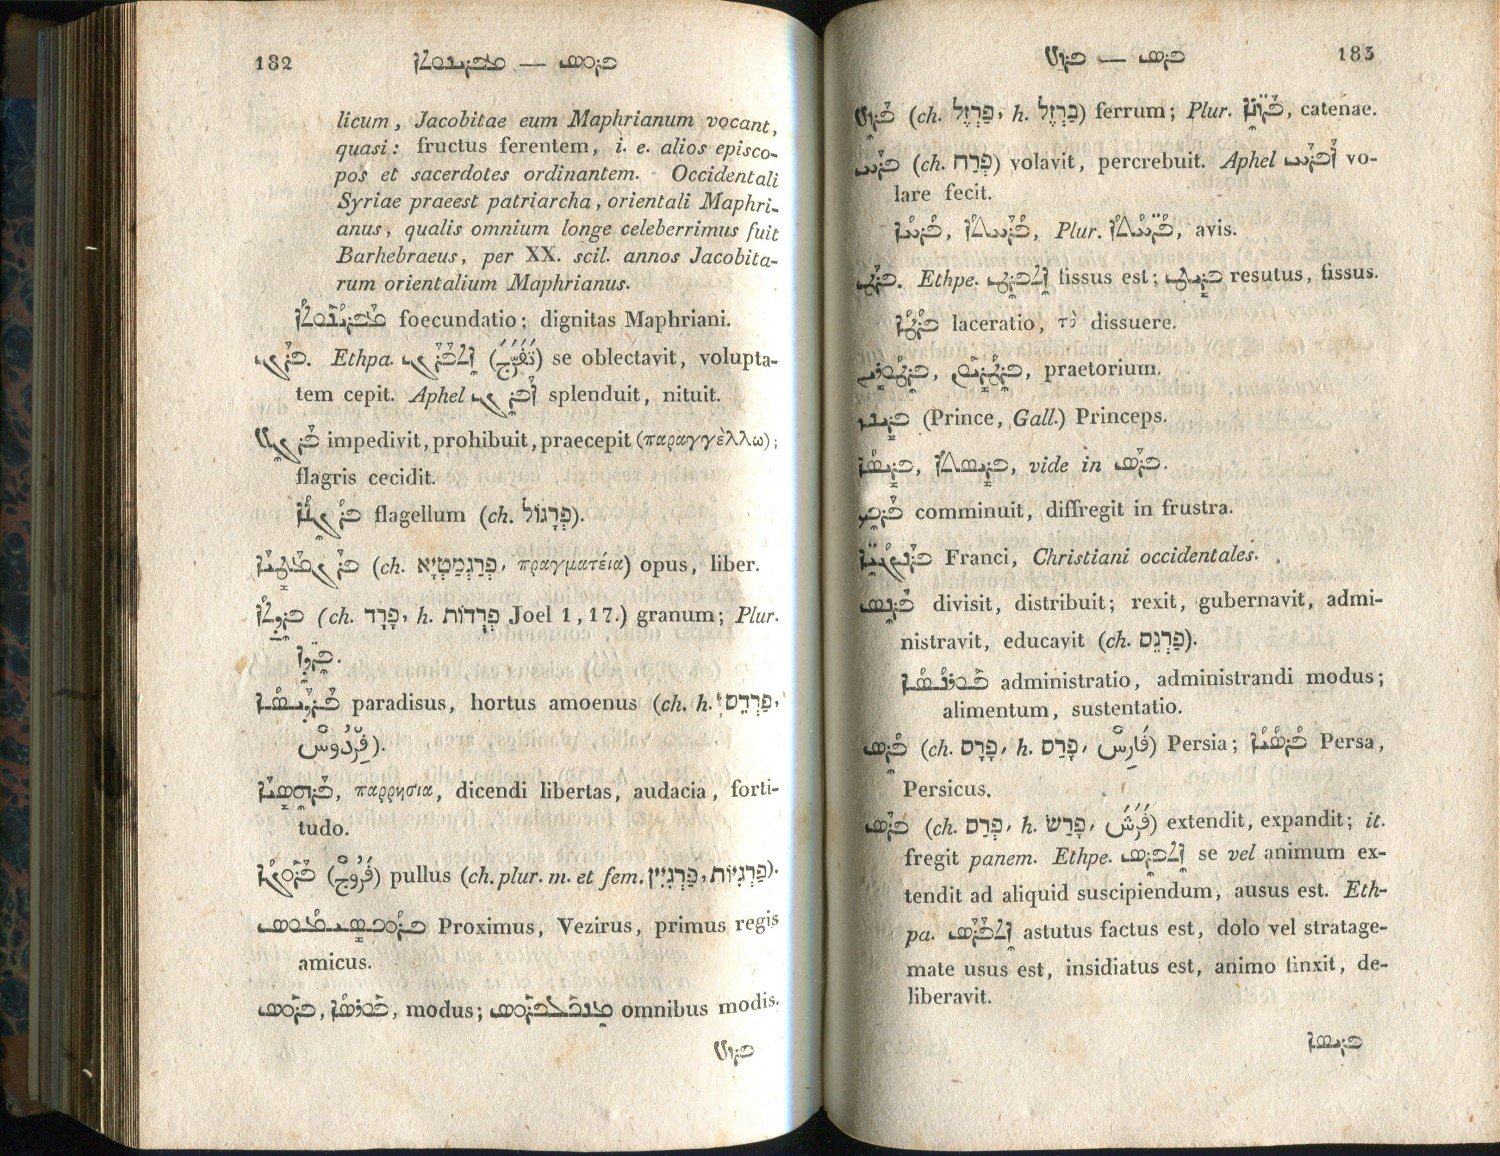 182 ܡܦܪܝܢܘܬܐ — ܦܪܘܣ
licum, Jacobitae eum Maphrianum vocant,
quasi: fructus ferentem, i. e. alios episco-
pos et sacerdotes ordinantem. Occidentali
Syriae praeest patriarcha, orientali Maphri-
anus, qualis omnium longe celeberrimus fuit
Barhebraeus, per XX. scil. annos Jacobita-
rum orientalium Maphrianus.
ܡܦܪܝܢܘܬܐ foecundatio; dignitas Maphriani.
ܦܪܓ. Ethpa. ܐܬܦܪܓ (تَفَرَّجَ) se oblectavit, volupta-
tem cepit. Aphel ܐܦܪܓ splenduit, nituit.
ܦܪܓܠ impedivit, prohibuit, praecepit (παραγγὲλλω);
flagris cecidit.
ܦܪܓܠܐ flagellum (ch. פְּרָגוֹל).
ܦܪܓܡܛܝܐ (ch. פְּרַגְמַטְיָא, πραγματεία) opus, liber.
ܦܪܕܬܐ (ch. פְּרָד, h. פְּרֻדוֹת Joel 1, 17.) granum; Plur.
ܦܪܕܐ.
ܦܪܕܝܣܐ paradisus, hortus amoenus (ch. h. פַּרְדֵּס,
فِرْدَوْسٌ).
ܦܪܗܣܝܐ, παρρησια, dicendi libertas, audacia, forti-
tudo.
ܦܪܘܓܐ (فَرُّوجٌ) pullus (ch. plur. m. et fem. פַּרְגִּיִּין, פַּרְגִּיּוֹת).
Proximus, Vezirus, primus regis
amicus.
ܦܪܘܣ, ܦܘܪܣܐ, modus; ܡܢܟܠܦܪܘܣ omnibus modis.
ܦܪܙܠ
ܦܪܙܠ — ܦܪܣ 183
ܦܪܙܠ (ch. פַּרְזֶל, h. בַּרְזֶל) ferrum; Plur. ܦܪܙܠܐ, catenae.
ܦܪܚ (ch. פְּרַח) volavit, percrebuit. Aphel ܐܦܪܚ vo-
lare fecit.
ܦܪܚܐ, ܦܪܚܬܐ, Plur. ܦܪܚܬܐ, avis.
ܦܪܛ. Ethpe. ܐܬܦܪܛ fissus est; ܦܪܝܛ resutus, fissus.
ܦܪܛܐ laceratio, τὸ dissuere.
praetorium.
ܦܪܝܢܨ (Prince, Gall.) Princeps.
ܦܪܝܣܐ, ܦܪܝܣܬܐ, vide in ܦܪܣ.
ܦܪܟ comminuit, diffregit in frustra.
ܦܪܢܓܝܐ Franci, Christiani occidentales.
ܦܪܢܣ divisit, distribuit; rexit, gubernavit, admi-
nistravit, educavit (ch. פַּרְנֵס).
ܦܘܪܢܣܐ administratio, administrandi modus;
alimentum, sustentatio.
ܦܪܣ (ch. פָּרָס, h. פָּרַס, فَارِسُ) Persia; ܦܪܣܝܐ Persa,
Persicus.
ܦܪܣ (ch. פְּרַס, h. פָּרַשׂ, فَرَشَ) extendit, expandit; it.
fregit panem. Ethpe. ܐܬܦܪܣ se vel animum ex-
tendit ad aliquid suscipiendum, ausus est. Eth-
pa. ܐܬܦܪܣ astutus factus est, dolo vel stratage-
mate usus est, insidiatus est, animo finxit, de-
liberavit.
ܦܪܝܣܐ